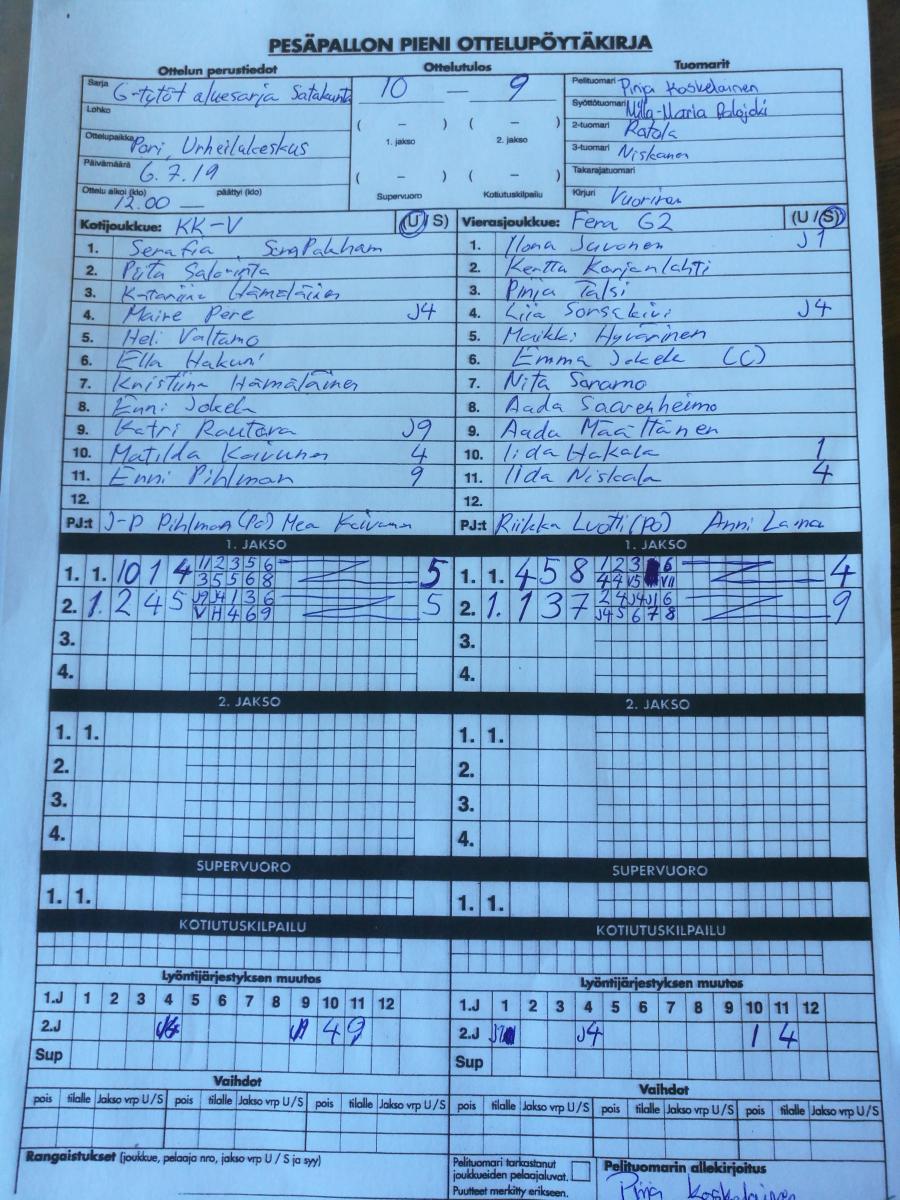 PESÄPALLON PIENI OTTELUPÖYTÄKIRJA
Ottelun perustiedot
Ottelutulos
Tuomarit
Sarja G-tytöt aluesarja Satakunta
10 — 9
Pelituomari Pinja Koskelainen
Lohko
( – ) ( – )
Syöttötuomari Milla-Maria
1. jakso 2. jakso
2-tuomari Ratala
Ottelupaikka Pori, Urheilukeskus
3-tuomari Niskanen
Päivämäärä 6.7.19
( – ) ( – )
Takarajatuomari
Ottelu alkoi (klo) 12.00 — päättyi (klo)
Supervuoro Kotiutuskilpailu
Kirjuri
Kotijoukkue: KK-V (U/S)
1. Serafia
2. Salorinta
3. Katariina Hämäläinen
4. Maire Pere J4
5. Heli Valtamo
6. Ella Hakuni
7. Kristiina Hämäläinen
8. Enni Jokela
9. Katri Rautava J9
10. Matilda Koivunen 4
11. Enni Pihlman 9
12.
PJ:t J-P Pihlman (PJ) Mea Koivunen
Vierasjoukkue: Fera G2 (U/S)
1. Ilona Juvonen J1
2. Kerttu Korjenlahti
3. Pinja Talsi
4. Liia Sorsakivi J4
5. Maikki Hyvärinen
6. Emma Jokela (C)
7. Nita Saramo
8. Aada Saarenheimo
9. Aada Määttänen
10. Iida Hakala 1
11. Iida Niskala 4
12.
PJ:t Riikka Luotti (PJ) Anni Laina
1. JAKSO
1. 1. 10 1 4 11 2 3 5 6 5
3 5 5 6 8
2. 1. 2 4 5 J9 J4 1 3 6 5
V H 4 6 9
3.
4.
1. JAKSO
1. 1. 4 5 8 1 2 3 6 4
4 4 V5 V11
2. 1. 1 3 7 2 4 J4 J1 6 9
J4 5 6 7 8
3.
4.
2. JAKSO
1. 1.
2.
3.
4.
2. JAKSO
1. 1.
2.
3.
4.
SUPERVUORO
1. 1.
SUPERVUORO
1. 1.
KOTIUTUSKILPAILU
KOTIUTUSKILPAILU
Lyöntijärjestyksen muutos
1.J 1 2 3 4 5 6 7 8 9 10 11 12
2.J 4 9
Sup
Lyöntijärjestyksen muutos
1.J 1 2 3 4 5 6 7 8 9 10 11 12
2.J J1 J4 1 4
Sup
Vaihdot
pois tilalle Jakso vrp U/S pois tilalle Jakso vrp U/S pois tilalle Jakso vrp U/S
Vaihdot
pois tilalle Jakso vrp U/S pois tilalle Jakso vrp U/S pois tilalle Jakso vrp U/S
Rangaistukset (joukkue, pelaaja nro, jakso vrp U / S ja syy)
Pelituomari tarkastanut
joukkueiden pelaajaluvat.
Puutteet merkitty erikseen.
Pelituomarin allekirjoitus
Pinja Koskelainen